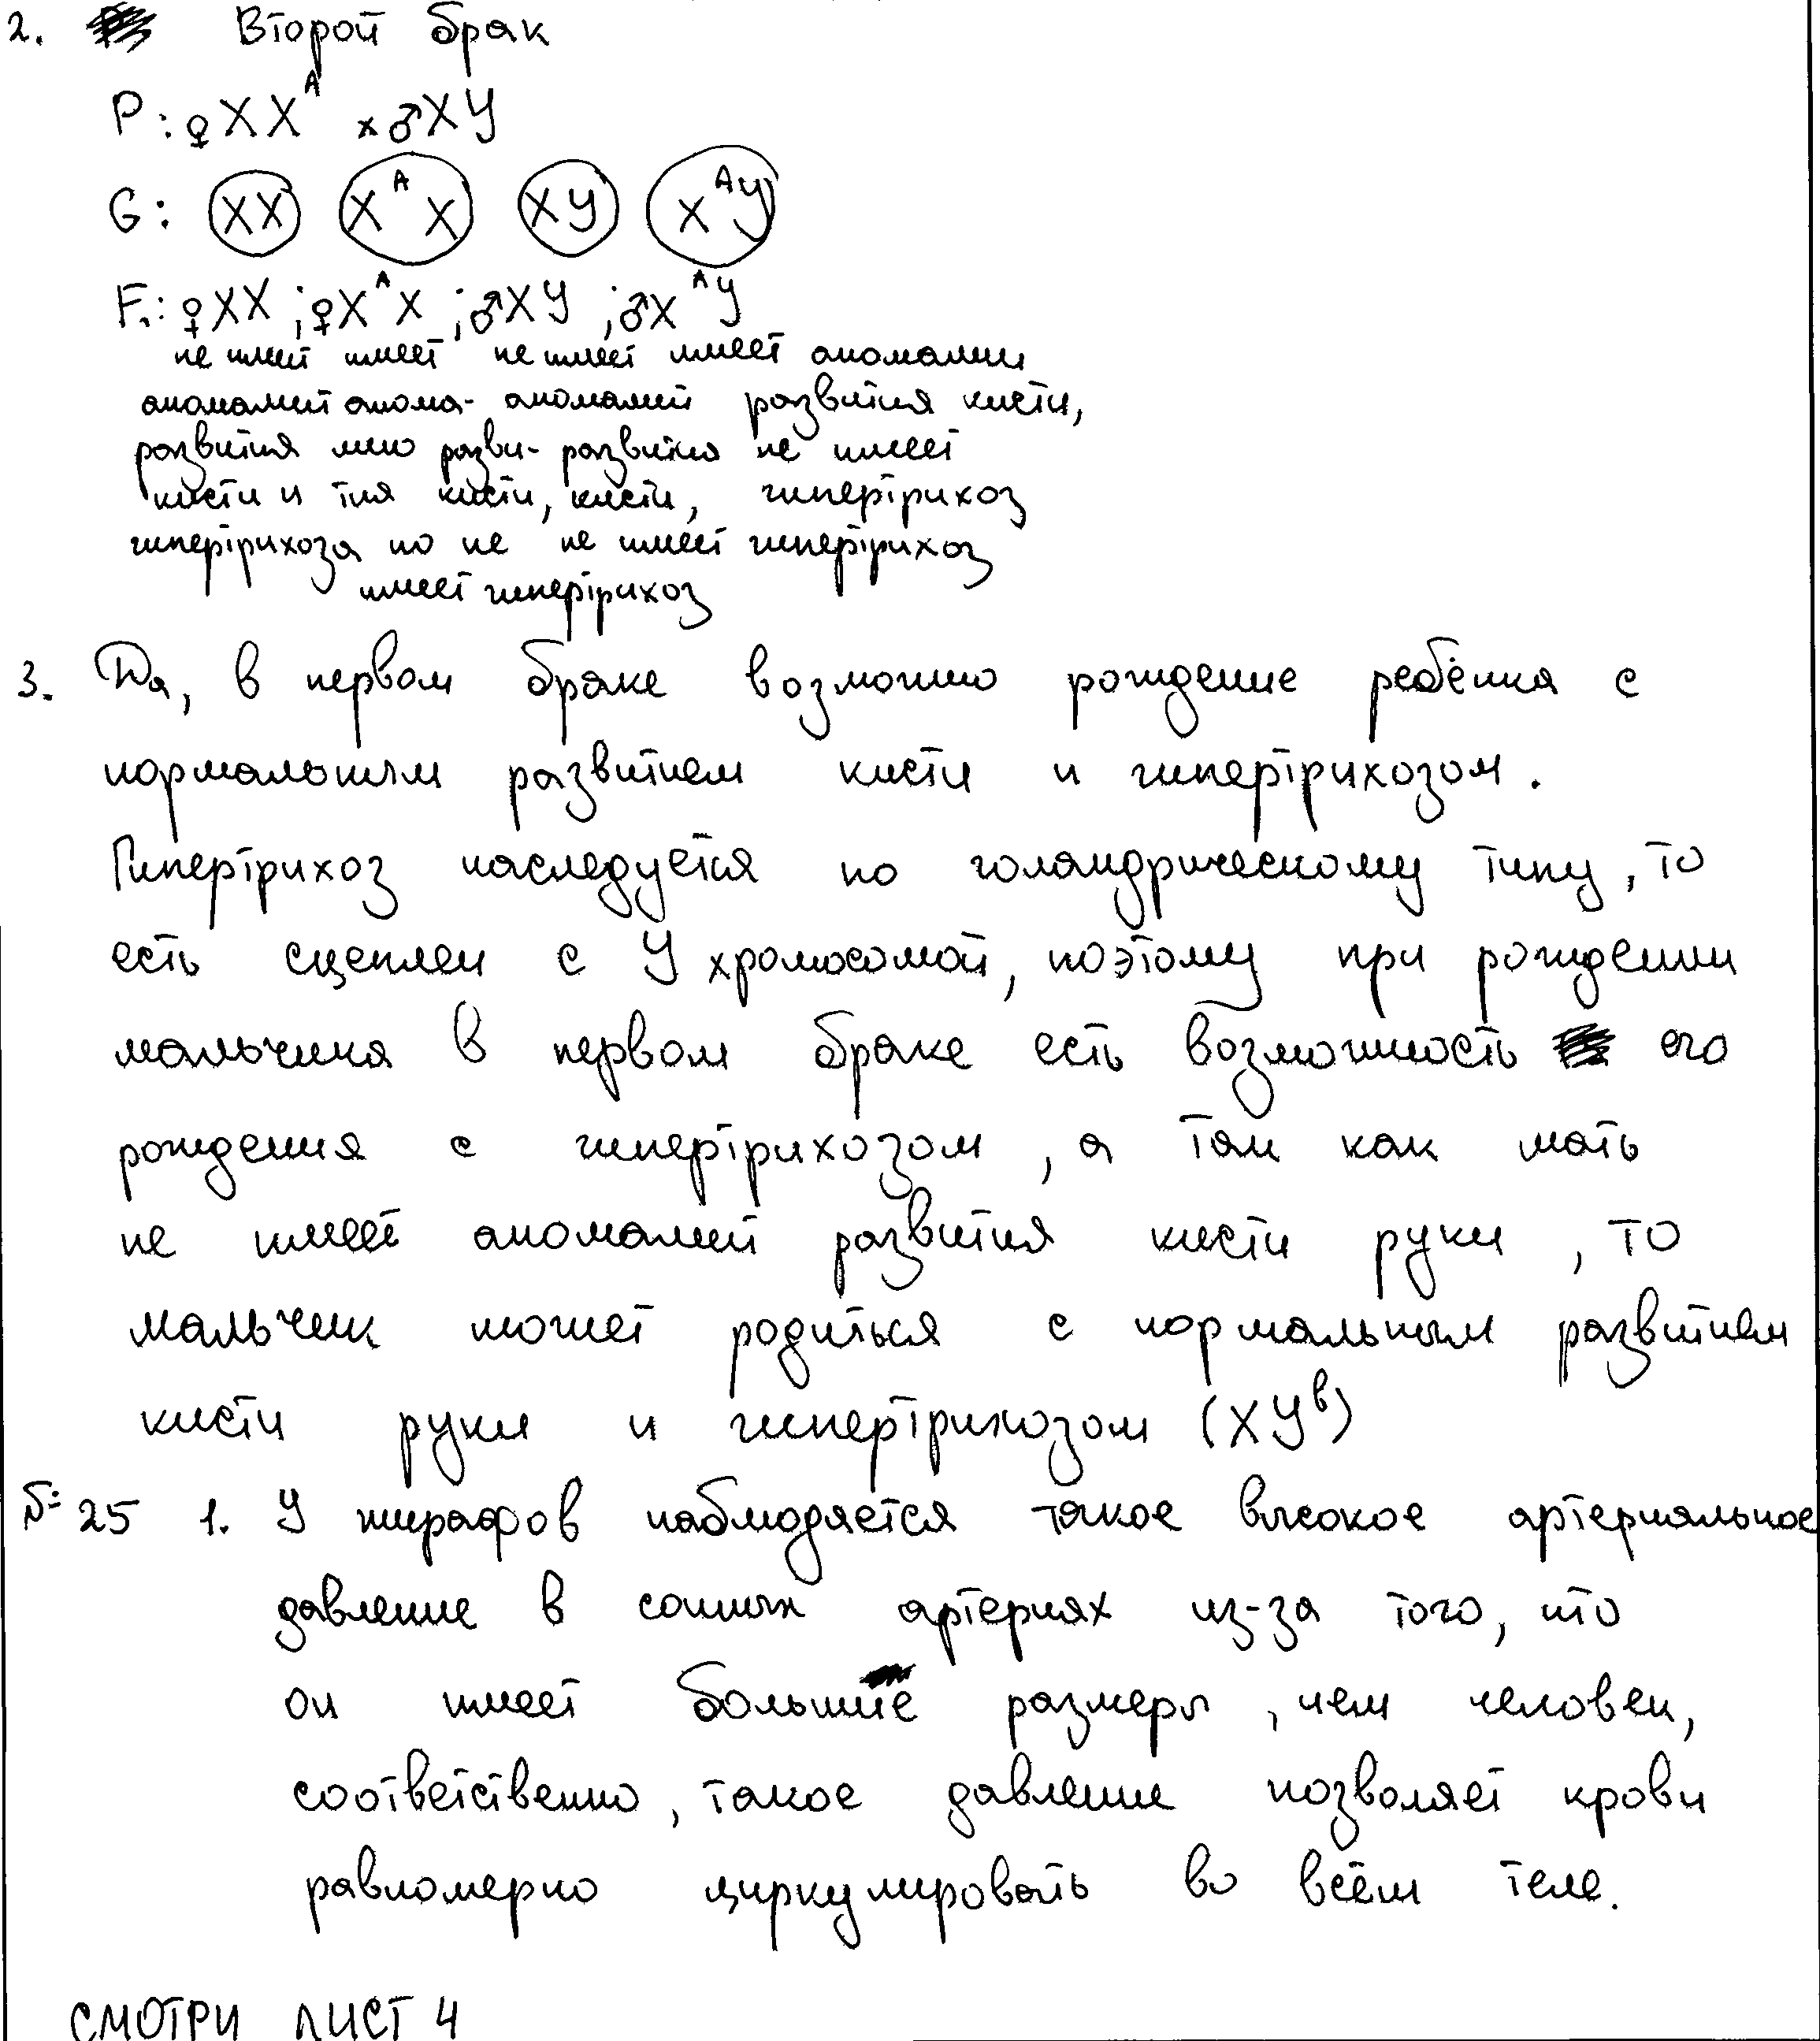 2. Второй брак
P: ♀XXᴬ x ♂XY
G: XX XᴬX XY XᴬY
F₁: ♀XX ; ♀XᴬX ; ♂XY ; ♂XᴬY
не имеет имеет не имеет имеет аномалии
аномалий анома- аномалий развития кисти,
развития лию разви- развития не имеет
кисти и тия кисти, кисти, гипертрихоз
гипертрихоза но не не имеет гипертрихоз
имеет гипертрихоз
3. Да, в первом браке возможно рождение ребёнка с
нормальным развитием кисти и гипертрихозом.
Гипертрихоз наследуется по голандрическому типу, то
есть сцеплен с Y хромосомой, поэтому при рождении
мальчика в первом браке есть возможность его
рождения с гипертрихозом, а так как мать
не имеет аномалий развития кисти руки, то
мальчик может родиться с нормальным развитием
кисти руки и гипертрихозом (XYᵇ)
№ 25 1. У жирафов наблюдается такое высокое артериальное
давление в сонных артериях из-за того, что
он имеет большие размеры, чем человек,
соответственно, такое давление позволяет крови
равномерно циркулировать во всём теле.
СМОТРИ ЛИСТ 4